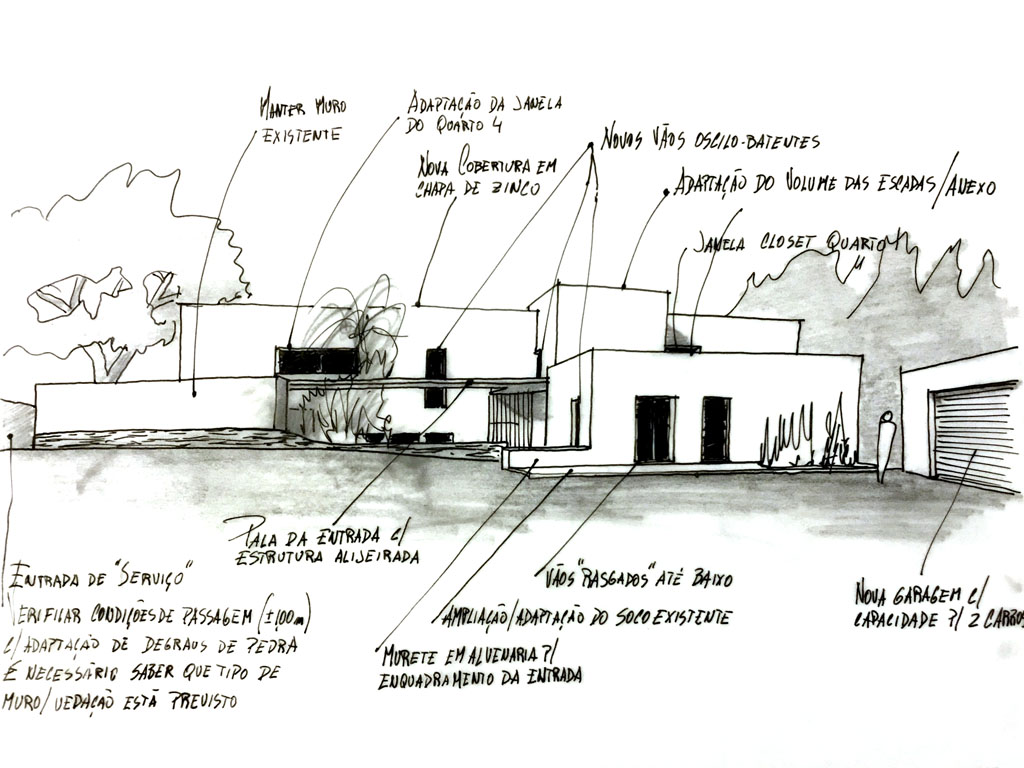 MANTER MURO
EXISTENTE
ADAPTAÇÃO DA JANELA
DO QUARTO 4
NOVA COBERTURA EM
CHAPA DE ZINCO
NOVOS VÃOS OSCILO-BATENTES
ADAPTAÇÃO DO VOLUME DAS ESCADAS/ANEXO
JANELA CLOSET QUARTO 4
PALA DA ENTRADA C/
ESTRUTURA ALIJEIRADA
ENTRADA DE "SERVIÇO"
VERIFICAR CONDIÇÕES DE PASSAGEM (±1,00m)
C/ ADAPTAÇÃO DE DEGRAUS DE PEDRA
É NECESSÁRIO SABER QUE TIPO DE
MURO/VEDAÇÃO ESTÁ PREVISTO
VÃOS "RASGADOS" ATÉ BAIXO
AMPLIAÇÃO/ADAPTAÇÃO DO SOCO EXISTENTE
MURETE EM ALVENARIA P/
ENQUADRAMENTO DA ENTRADA
NOVA GARAGEM C/
CAPACIDADE P/ 2 CARROS